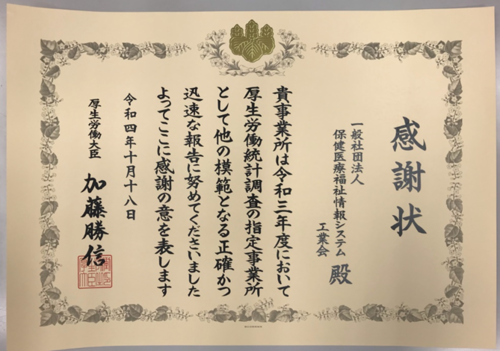 感謝状
一般社団法人
保健医療福祉情報システム
工業会 殿
貴事業所は令和三年度において
厚生労働統計調査の指定事業所
として他の模範となる正確かつ
迅速な報告に努めてくださいました
よってここに感謝の意を表します
令和四年十月十八日
厚生労働大臣 加藤勝信